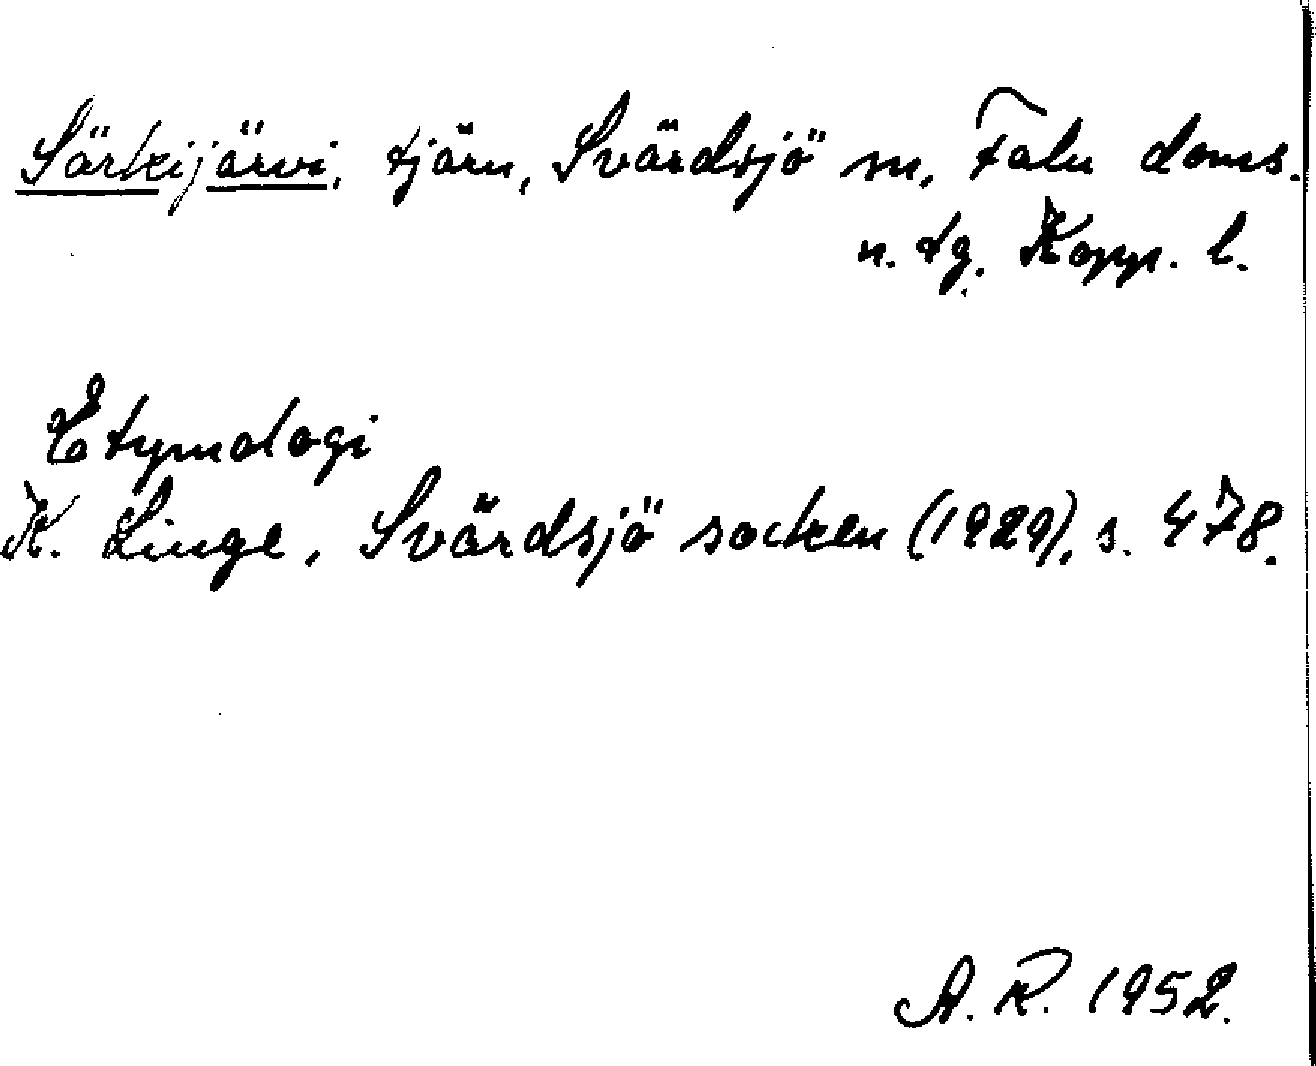 Särkijärvi, tjärn, Svärdsjö sn, Falu doms.
n. tg. Kopp. l.
Etymologi
K. Linge, Svärdsjö socken (1929), s. 478.
A. R. 1952.